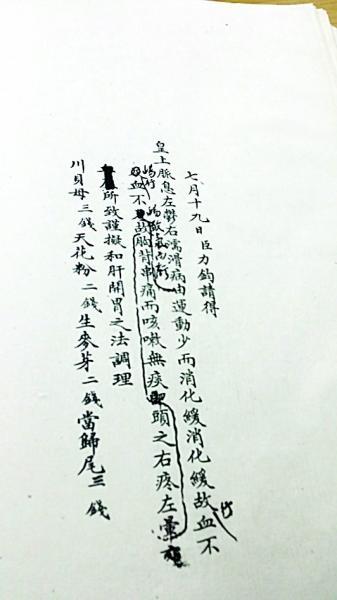 七月十九日臣力鈞請得
皇上脈息左鬱右濡滑病由運動少而消化緩消化緩故血不
行
血不故胸背串痛而咳嗽無痰頭之右疼左
所致謹擬和肝開胃之法調理
川貝母三錢天花粉二錢生麥芽二錢當歸尾三錢